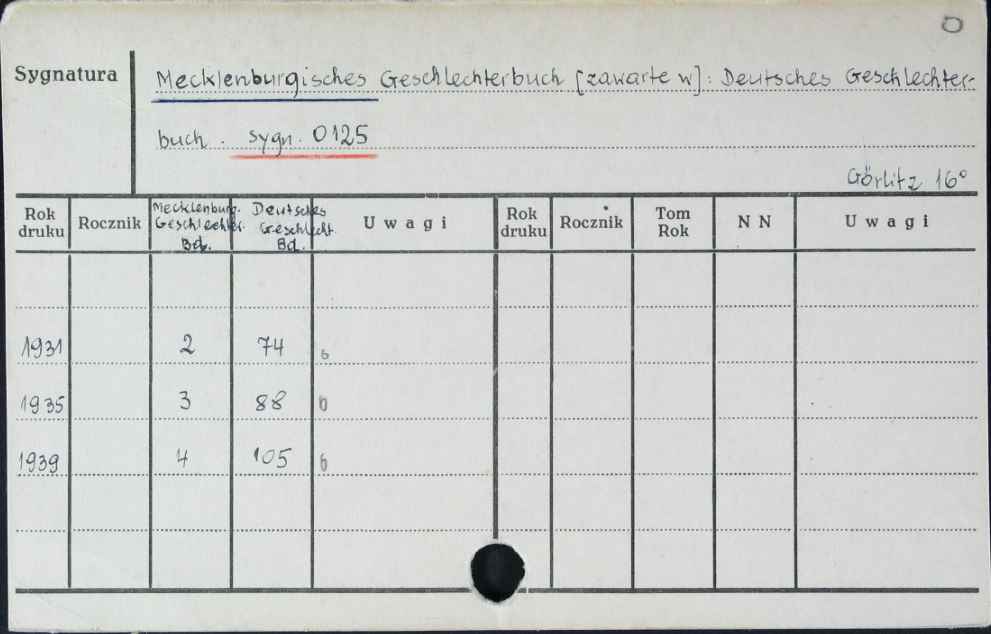 0
Sygnatura
Mecklenburgisches Geschlechterbuch [zawarte w]: Deutsches Geschlechter-
buch. sygn. 0125
Görlitz 16°
Rok druku Rocznik Mecklenburg. Geschlechter. Bd. Deutsches Geschlecht. Bd. Uwagi Rok druku Rocznik Tom Rok NN Uwagi
1931 2 74
1935 3 88 0
1939 4 105